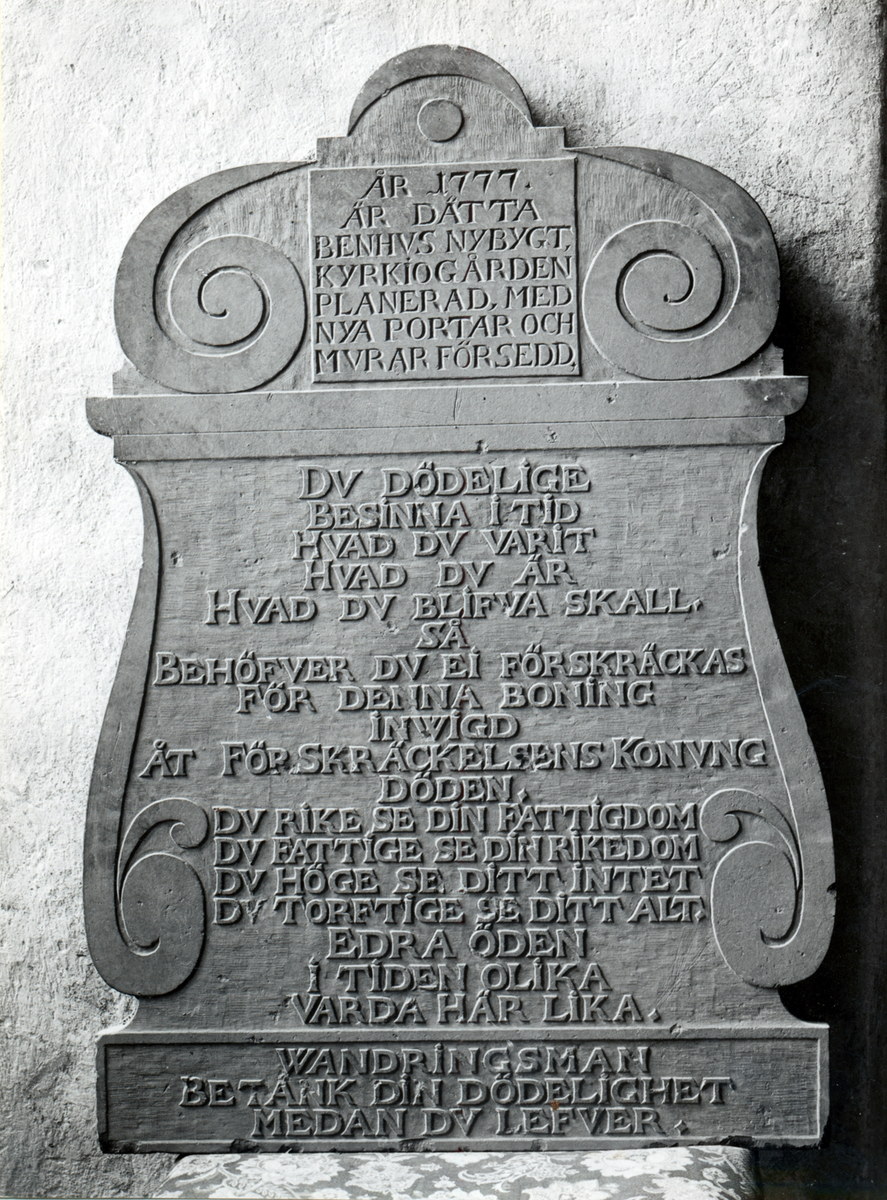 ÅR 1777.
ÄR DÄTTA
BENHVS NYBYGT,
KYRKIOGÅRDEN
PLANERAD, MED
NYA PORTAR OCH
MVRAR FÖRSEDD.
DV DÖDELIGE
BESINNA I TID
HVAD DV VARIT
HVAD DV ÄR
HVAD DV BLIFVA SKALL.
SÅ
BEHÖFVER DV EI FÖRSKRÄCKAS
FÖR DENNA BONING
INWIGD
ÅT FÖRSKRÄCKELSENS KONVNG
DÖDEN.
DV RIKE SE DIN FATTIGDOM
DV FATTIGE SE DIN RIKEDOM
DV HÖGE SE DITT INTET
DV TORFTIGE SE DITT ALT.
EDRA ÖDEN
I TIDEN OLIKA
VARDA HÄR LIKA.
WANDRINGSMAN
BETÄNK DIN DÖDELIGHET
MEDAN DV LEFVER.